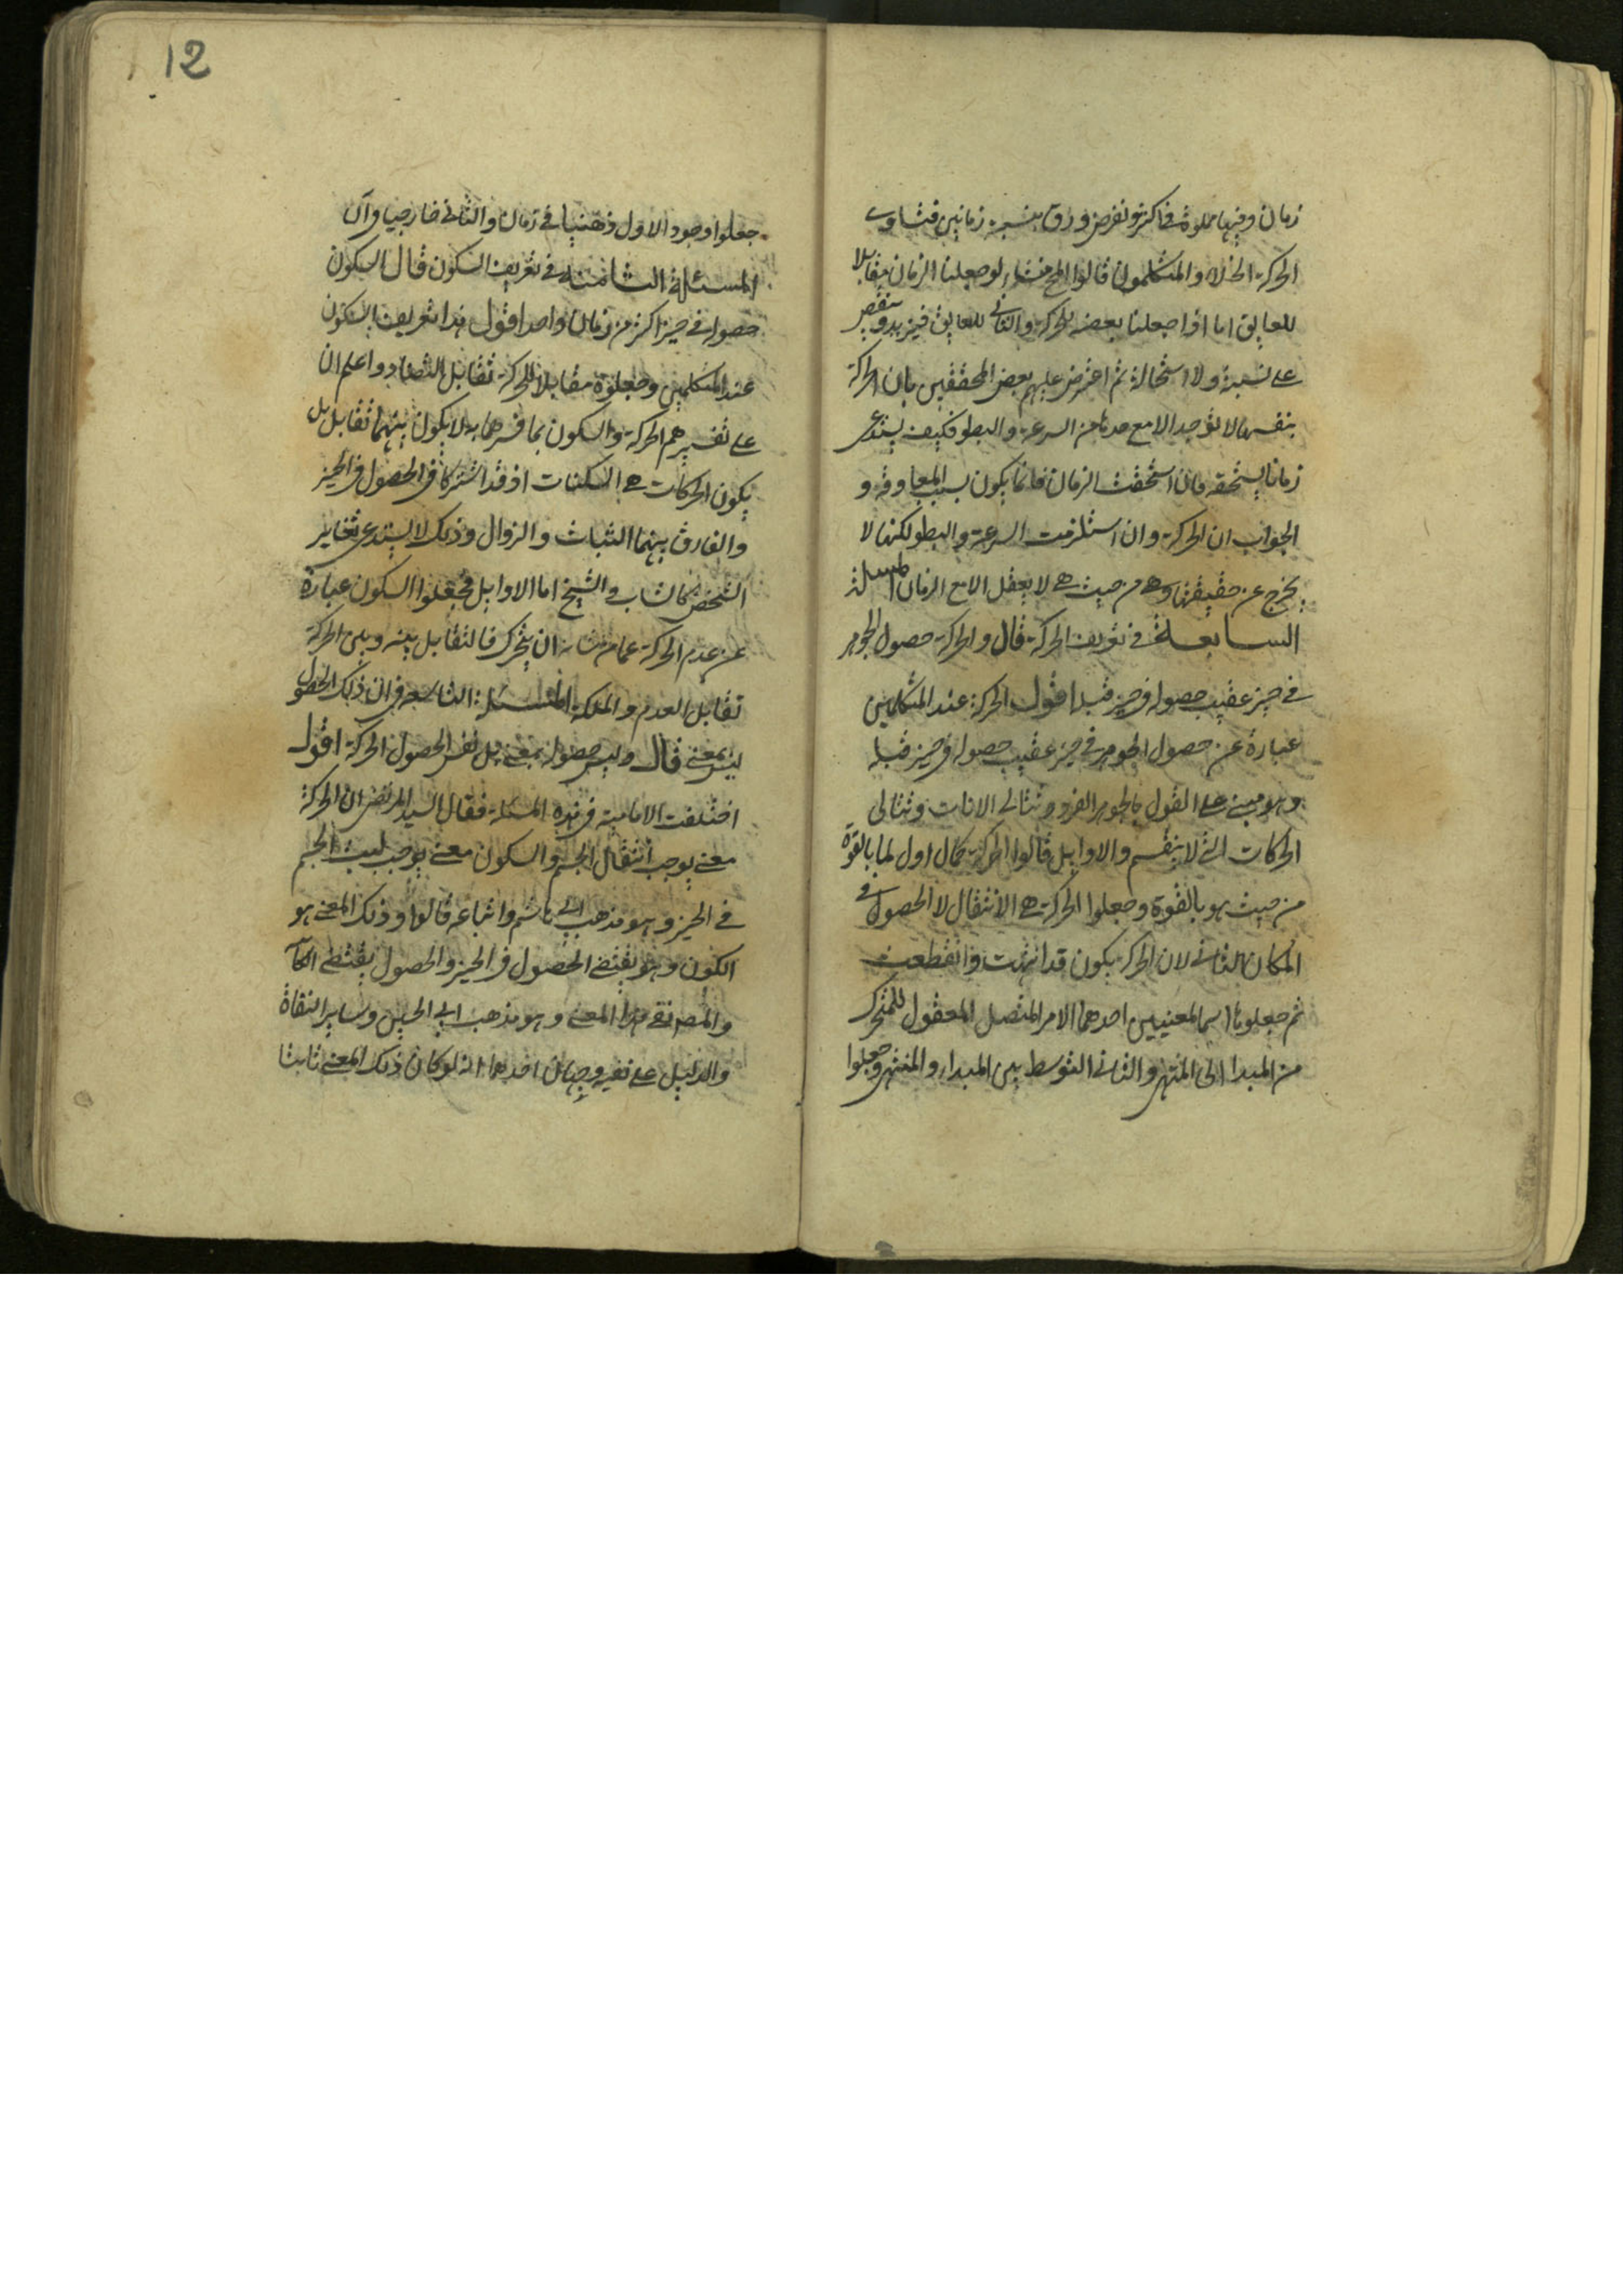 زمان وفيها مملوة في اكثر ونفرض ورق بنسبة زمانين فتساوى
الحركة الخلاء والمتكلمون قالوا المح منشاء لو جعلنا الزمان مقابلا
للعايق اما اذا جعلنا بعضه للحركة والثانى للعايق فيزيد وينقص
على نسبة ولا استحالة ثم اعترض عليهم بعض المحققين بان الحركة
بنفسها لا توجد الا مع حد ما من السرعة والبطو فكيف يستدعى
زمانا يستحقه فان استحقت الزمان فانما يكون بسبب المعاوقة و
الجواب ان الحركة وان استلزمت السرعة والبطو لكنها لا
يخرج عن حقيقتها وهى من حيث هى لا يعقل الا مع الزمان المسئلة
السابعة فى تعريف الحركة قال والحركة حصول الجوهر
فى حيز عقيب حصوله فى حيز قبله اقول الحركة عند المتكلمين
عبارة عن حصول الجوهر فى حيز عقيب حصوله فى حيز قبله
وهو مبنى على القول بالجوهر الفرد وتتالى الانات وتتالى
الحركات التى لا ينقسم والاوايل قالوا الحركة كمال اول لما بالقوة
من حيث هو بالقوة وجعلوا الحركة هى الانتقال لا الحصول فى
المكان الثانى لان الحركة يكون قد انتهت وانقطعت
ثم جعلوها اسما لمعنيين احدهما الامر المتصل المعقول للمتحرك
من المبدا الى المنتهى والثانى التوسط بين المبداء والمنتهى وجعلوا
جعلوا وجود الاول ذهنيا فى زمان والثانى خارجيا وآن
المسئلة الثامنة فى تعريف السكون قال السكون
حصوله فى حيز اكثر من زمان واحد اقول هذا تعريف السكون
عند المتكلمين وجعلوه مقابلا للحركة تقابل التضاد واعلم ان
على تفسيرهم الحركة والسكون بما فسرهما به لا يكون بينهما تقابل بل
يكون الحركات هى السكنات اذ قد اشتركا فى الحصول فى الحيز
والفارق بينهما الثبات والزوال وذلك لا يستدعى تغاير
الشخص كالشاب والشيخ اما الاوايل فجعلوا السكون عبارة
عن عدم الحركة عما من شانه ان يتحرك فالتقابل بينه وبين الحركة
تقابل العدم والملكة المسئلة التاسعة فى ان ذلك الحصول
ليس بمعنى قال وليس حصوله بمعنى بل نفس الحصول الحركة اقول
اختلفت الامامية فى هذه المسئلة فقال السيد المرتضى ان الحركة
معنى يوجب انتقال الجسم والسكون معنى يوجب لبث الجسم
فى الحيز وهو مذهب ابى هاشم واتباعه قالوا وذلك المعنى هو
الكون وهو يقتضى الحصول فى الحيز والحصول يقتضى الكآ
والمص نفى هذا المعنى وهو مذهب ابى الحسين وساير النفاة
والدليل على نفيه وجهان احدهما انه لو كان ذلك المعنى ثابتا
12